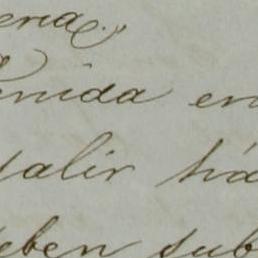 eria.
enida en
salir há
eben sub